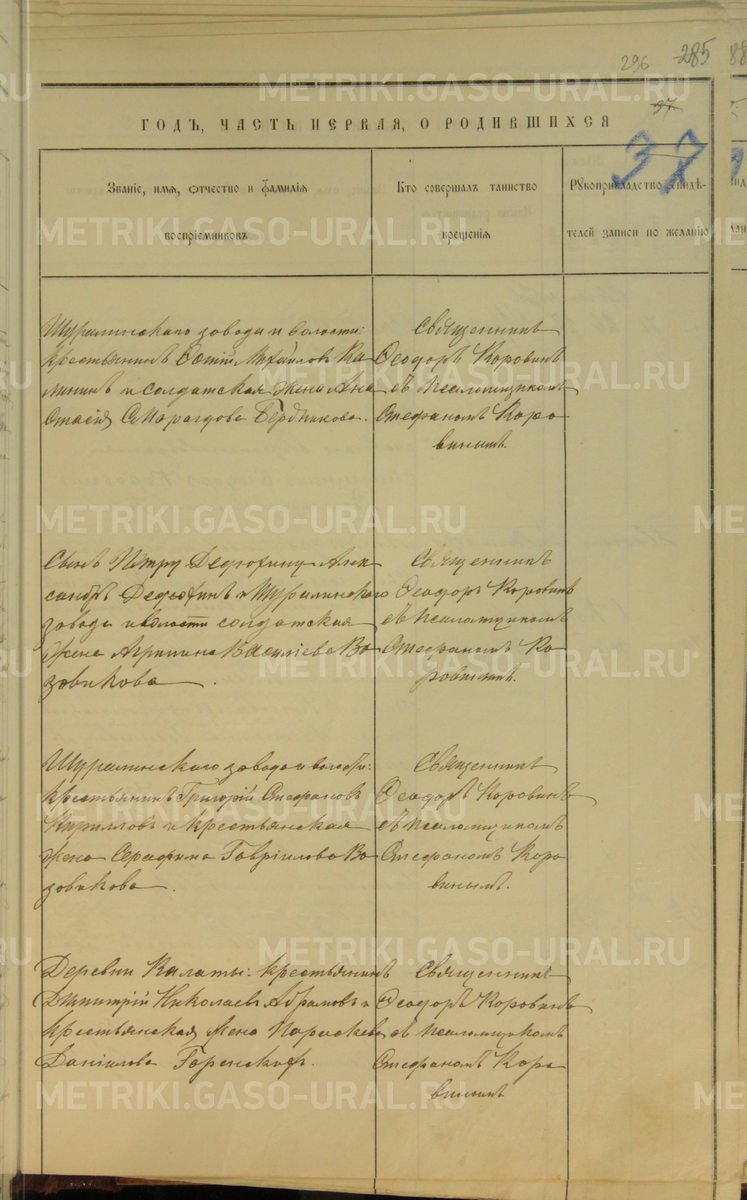 296 285 88
37
ГОДЪ, ЧАСТЬ ПЕРВАЯ, О РОДИВШИХСЯ
37
Званіе, имя, отчество и фамилія
воспріемниковъ
Кто совершалъ таинство
крещенія
Рукоприкладство свидѣ-
телей записи по желанію
Шуралинскаго завода и волости:
крестьянинъ Михайловъ Ка
лининъ и солдатская жена Ана
стасія Смарагдова Бердникова.
Священникъ
Ѳеодоръ Коровинъ
съ псаломщикомъ
Стефаномъ Коро
винымъ.
Сынъ Петру Дедюхину Алек
сандръ Дедюхинъ и Шуралинскаго
завода и волости солдатская
жена Агрипина Василіева Во
зовикова.
Священникъ
Ѳеодоръ Коровинъ
съ псаломщикомъ
Стефаномъ Ко
ровинымъ.
Шуралинскаго завода и волости:
крестьянинъ Григорій Стефановъ
Кирилловъ и крестьянская
жена Серафима Гавріилова Во
зовикова.
Священникъ
Ѳеодоръ Коровинъ
съ псаломщикомъ
Стефаномъ Коро
винымъ.
Деревни Калаты: крестьянинъ
Димитрій Николаевъ Абрамовъ и
крестьянская жена Параскева
Даніилова Горенскихъ.
Священникъ
Ѳеодоръ Коровинъ
съ псаломщикомъ
Стефаномъ Коро
винымъ
METRIKI.GASO-URAL.RU